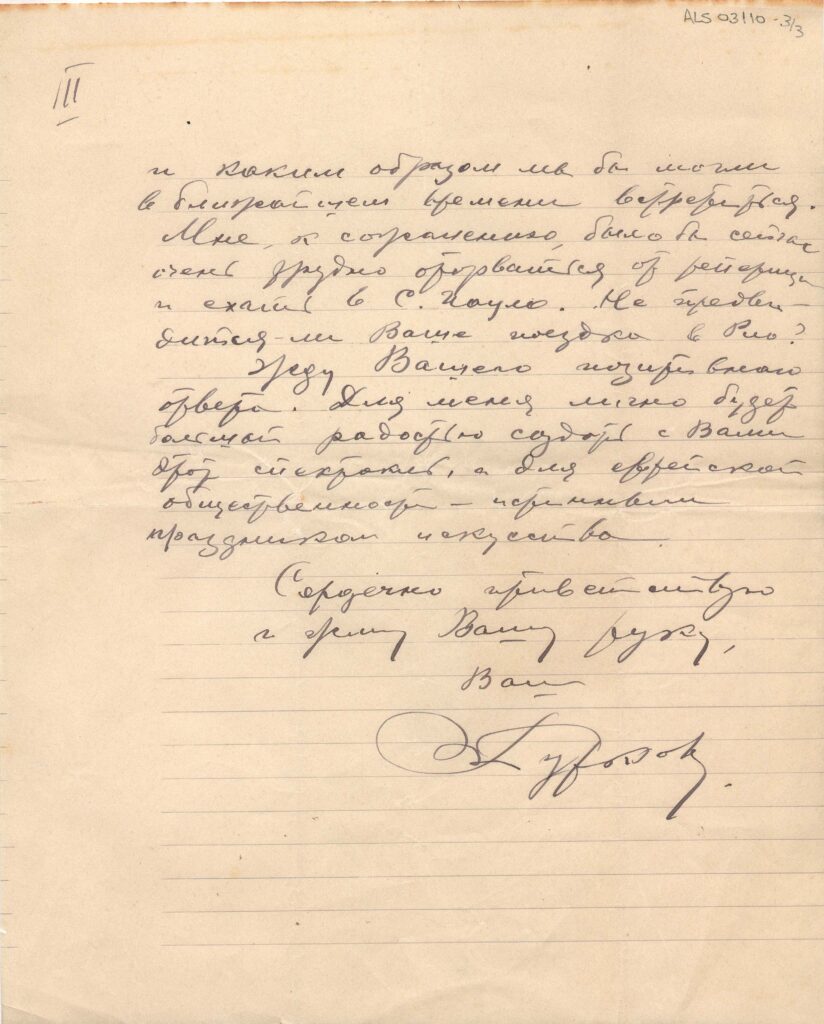 ALS 03110 - 3/3
III
и каким образом мы бы могли
в ближайшем времени встретиться.
Мне, к сожалению, было бы сейчас
очень трудно оторваться от репетиций
и ехать в С. Пауло. Не предви-
дится-ли Ваша поездка в Рио?
Жду Вашего позитивного
ответа. Для меня лично будет
большой радостью создать с Вами
этот спектакль, а для еврейской
общественности – истинным
праздником искусства.
Сердечно приветствую
и жму Вашу руку,
Ваш